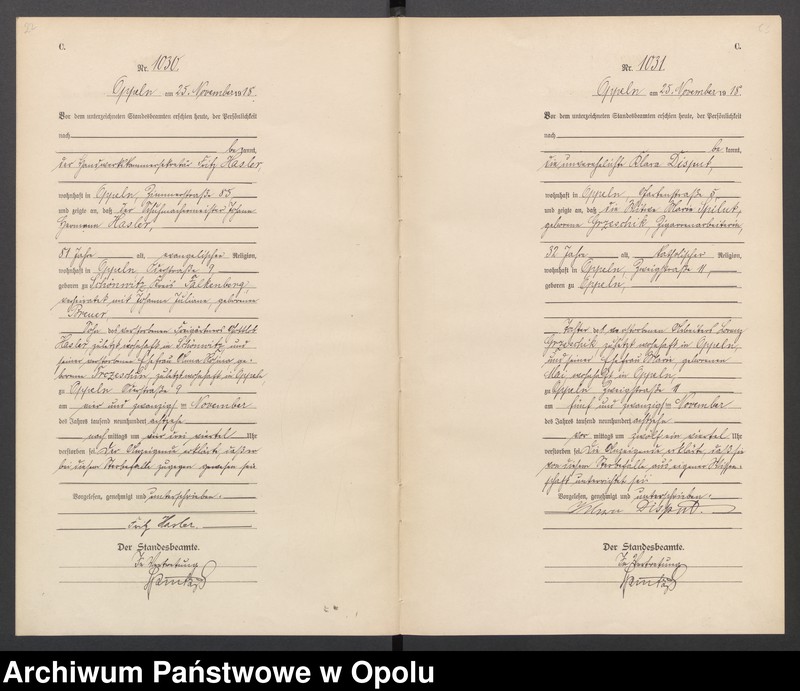 C.
Nr. 1030.
Oppeln am 25. November 1918.
Vor dem unterzeichneten Standesbeamten erschien heute, der Persönlichkeit
nach
be kannt,
der Handwerkskammersekretär Fritz Hasler,
wohnhaft in Oppeln, Zimmerstraße 85
und zeigte an, daß der Schuhmachermeister Johann
Hermann Hasler,
81 Jahr alt, evangelischer Religion,
wohnhaft in Oppeln Oderstraße 9
geboren zu Schönwitz Kreis Falkenberg,
verheiratet mit Johanna Juliane, geborene
Breuer,
Sohn des verstorbenen Freigärtners Gottlob
Hasler, zuletzt wohnhaft in Schönwitz und
seiner verstorbenen Ehefrau Anna ge-
borene zuletzt wohnhaft in Oppeln
zu Oppeln Oderstraße 9
am vier und zwanzigsten November
des Jahres tausend neunhundert achtzehn
nach mittags um drei viertel Uhr
verstorben sei. Der Anzeigende erklärte, daß er
bei diesem Sterbefalle zugegen gewesen sei.
Vorgelesen, genehmigt und unterschrieben.
Fritz Hasler.
Der Standesbeamte.
In Vertretung
C.
Nr. 1031.
Oppeln am 25. November 1918.
Vor dem unterzeichneten Standesbeamten erschien heute, der Persönlichkeit
nach
be kannt,
die unverehelichte Klara Disput,
wohnhaft in Oppeln, 5
und zeigte an, daß die Witwe Marie
geborene Grzeschik, Zigarrenarbeiterin,
32 Jahr alt, katholischer Religion,
wohnhaft in Oppeln, Zweigstraße 11,
geboren zu Oppeln,
Tochter des verstorbenen Arbeiters Lorenz
Grzeschik zuletzt wohnhaft in Oppeln,
und seiner Ehefrau Marie geborenen
wohnhaft in Oppeln
zu Oppeln Zweigstraße 11
am fünf und zwanzigsten November
des Jahres tausend neunhundert achtzehn
vor mittags um zwölf ein viertel Uhr
verstorben sei. Die Anzeigende erklärte, daß sie
von diesem Sterbefalle aus eigener Wissen-
schaft unterrichtet sei.
Vorgelesen, genehmigt und unterschrieben.
Disput.
Der Standesbeamte.
In Vertretung
Archiwum Państwowe w Opolu